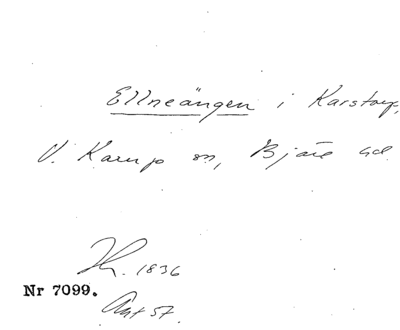 Ellneängen i Karstorp,
V. Karup sn, Bjäre hd
H. 1836
Nr 7099.
Akt 57.